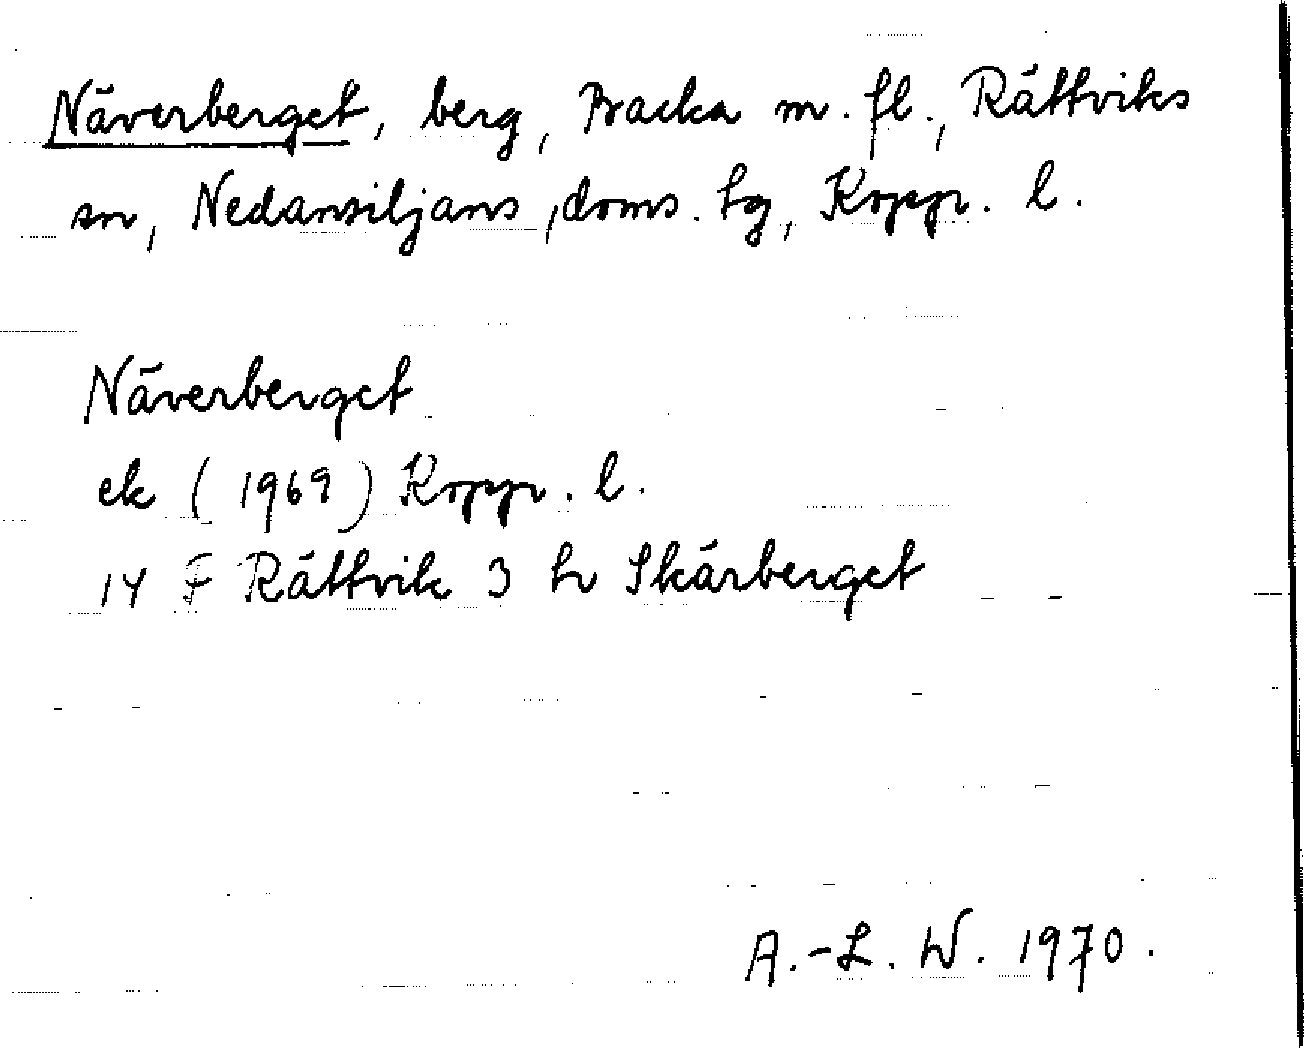 Näverberget, berg, Backa m. fl., Rättviks
sn, Nedansiljans, doms. tg, Kopp. l.
Näverberget
ek (1969) Kopp. l.
14 F Rättvik 3 h Skärberget
A.-L. W. 1970.